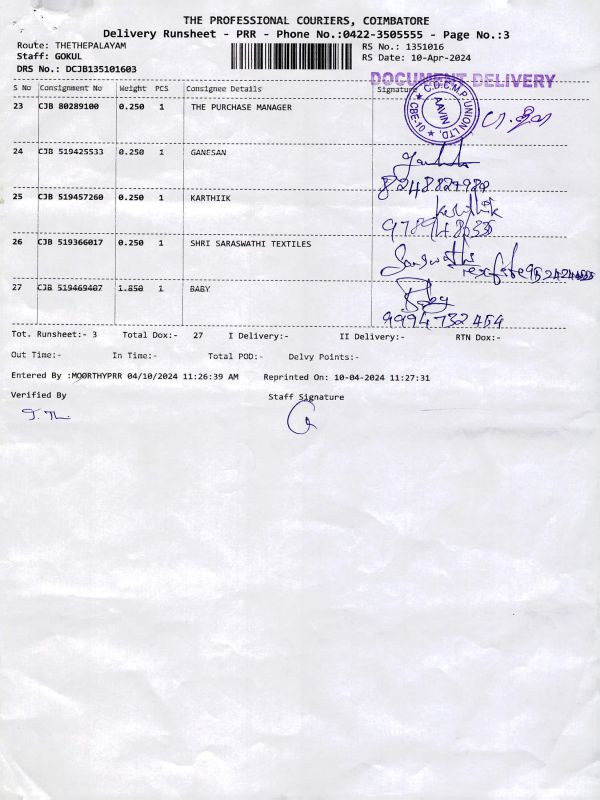 THE PROFESSIONAL COURIERS, COIMBATORE
Delivery Runsheet - PRR - Phone No.:0422-3505555 - Page No.:3
Route: THETHEPALAYAM
Staff: GOKUL
DRS No.: DCJB135101603
RS No.: 1351016
RS Date: 10-Apr-2024
DOCUMENT DELIVERY
S No Consignment No Weight PCS Consignee Details Signature
23 CJB 80289100 0.250 1 THE PURCHASE MANAGER
C.D.C.M.P. UNION LTD. CBE-10 AAVIN
24 CJB 519425533 0.250 1 GANESAN
25 CJB 519457260 0.250 1 KARTHIIK
26 CJB 519366017 0.250 1 SHRI SARASWATHI TEXTILES
Saraswathi
27 CJB 519469407 1.850 1 BABY
Baby
9994732454
Tot. Runsheet:- 3 Total Dox:- 27 I Delivery:- II Delivery:- RTN Dox:-
Out Time:- In Time:- Total POD:- Delvy Points:-
Entered By :MOORTHYPRR 04/10/2024 11:26:39 AM Reprinted On: 10-04-2024 11:27:31
Verified By Staff Signature